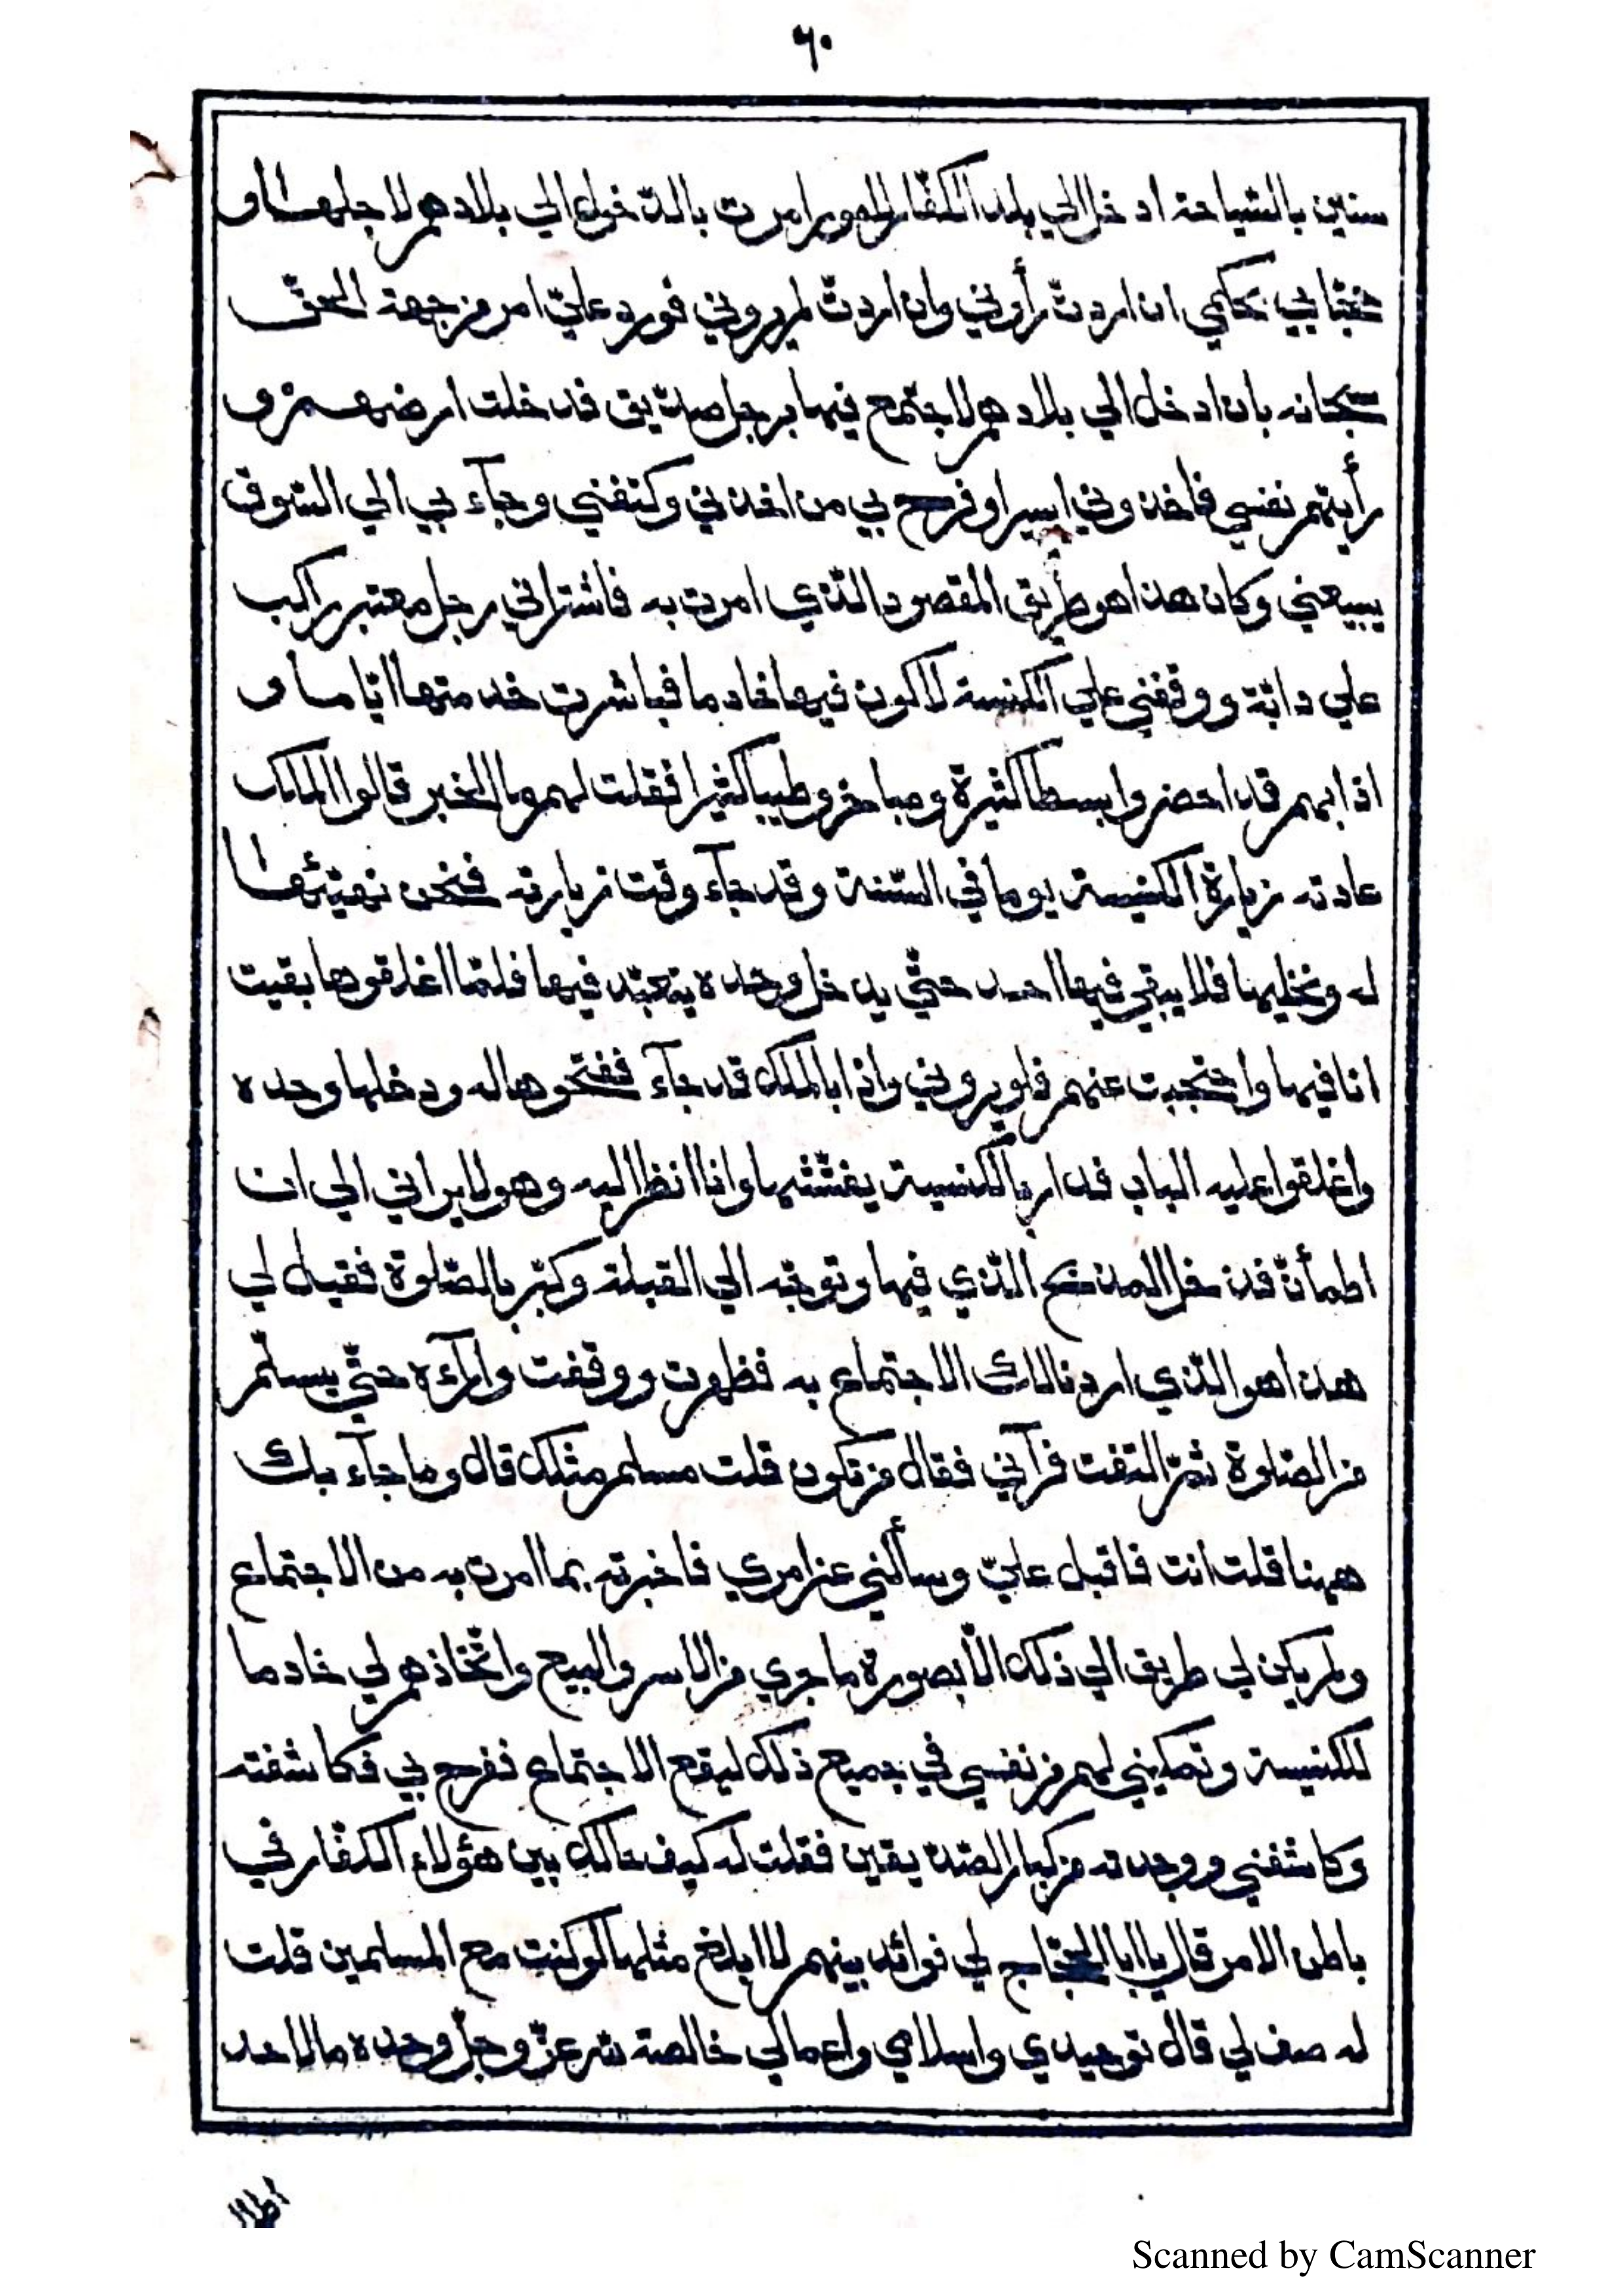 ٦٠
سنين بالسّياحة ادخل الي بلد الكفّار لامور امرت بالدّخول الي بلادهم لاجلها و
خبّابي بحكمي ان اردت رأوني وان اردت لم يروني فورد عليّ امر من جهة الحقّ
سبحانه بان ادخل الي بلادهم لاجتمع فيها برجل صدّيق فدخلت ارضهم و
رأيتهم نفسي فاخذوني اسيرا وفرح بي من اخذني وكتفني وجآء بي الي السّوق
يبيعني وكان هذا هو طريق المقصود الّذي امرت به فاشتراني رجل معتبر راكب
علي دابّة ووقفني علي الكنيسة لاكون فيها خادما فباشرت خدمتها ايّاما و
اذا بهم قد احضروا بسطا كثيرة ومباخر وطيبا كثيرا فقلت لهم ما الخبر قالوا الملك
عادته زيارة الكنيسة يوما في السّنة وقد جآء وقت زيارته فنحن نهيّئها
له ونخليها فلا يبقي فيها احد حتّي يدخل وحده يتعبّد فيها فلمّا اغلقوها بقيت
انا فيها واحتجبت عنهم فلم يروني واذا بالملك قد جآء ففتحوها له ودخلها وحده
واغلقوا عليه الباب فدار بالكنيسة يفتّشها وانا انظر اليه وهو لا يراني الي ان
اطمأنّ فدخل المذبح الّذي فيها وتوجّه الي القبلة وكبّر بالصّلوة فقيل لي
هذا هو الّذي اردنا لك الاجتماع به فظهرت ووقفت وارآءه حتّي يسلّم
من الصّلوة ثمّ التفت فرآني فقال من تكون قلت مسلم مثلك قال وما جآء بك
ههنا قلت انت فاقبل عليّ وسألني عن امري فاخبرته بما امرت به من الاجتماع
ولم يكن لي طريق الي ذلك الّا بصورة ما جري من الاسر والبيع واتّخاذهم لي خادما
للكنيسة وتمكيني لهم من نفسي في جميع ذلك ليقع الاجتماع ففرح بي فكاشفته
وكاشفني ووجدته من كبار الصّدّيقين فقلت له كيف حالك بين هؤلاء الكفّار في
باطن الامر قال يا ابا الحجّاج لي فوائد بينهم لا ابلغ مثلها لو كنت مع المسلمين قلت
له صف لي قال توحيدي واسلامي واعمالي خالصة لله عزّ وجلّ وحده ما لاحد
Scanned by CamScanner